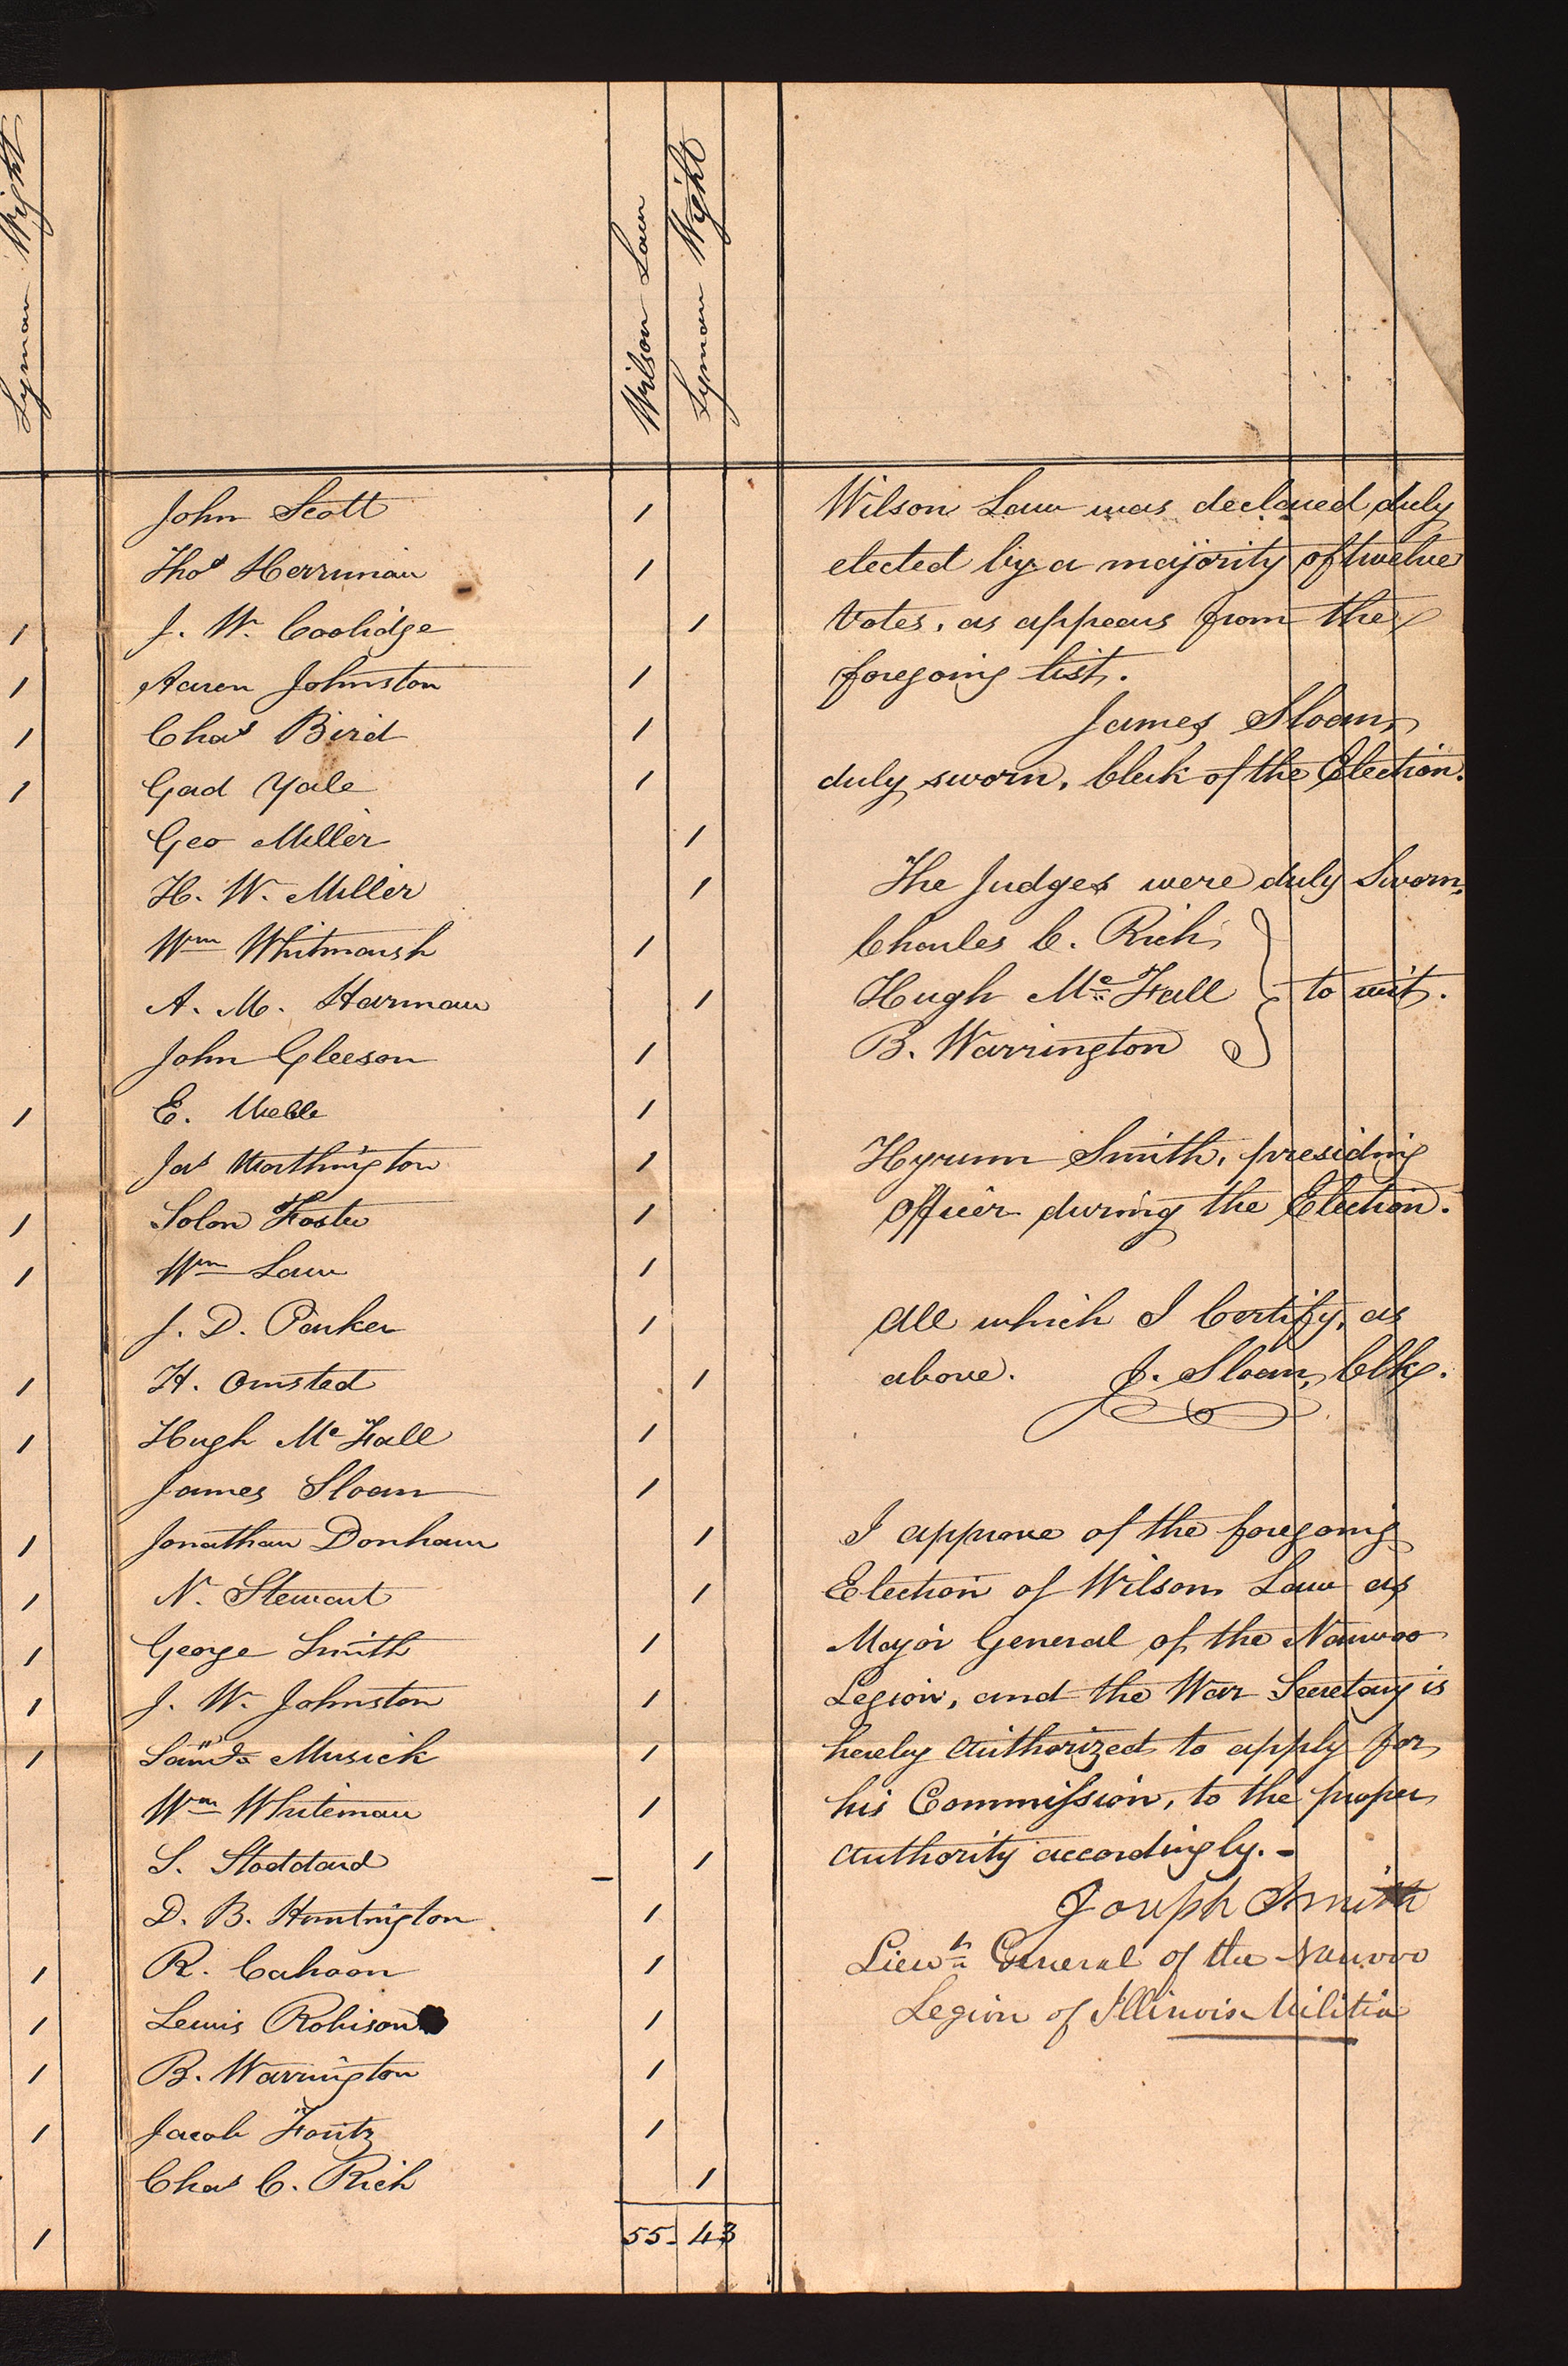 Lyman Wight
Wilson Law
Lyman Wight
John Scott 1
Thos Herriman 1
J. W. Coolidge 1
Aaren Johnston 1
Chas Bird 1
Gad Yale 1
Geo Miller 1
H. W. Miller 1
Wm Whitmarsh 1
A. M. Harman 1
John Gleeson 1
E. Webb 1
Jas Worthington 1
Solon Foster 1
Wm Law 1
J. D. Parker 1
H. Omsted 1
Hugh Mc Fall 1
James Sloan 1
Jonathan Donham 1
N. Stewart 1
George Smith 1
J. W. Johnston 1
Musick 1
Wm Whiteman 1
S. Stoddard 1
D. B. Huntington 1
R. Cahoon 1
Lewis Robison 1
B. Warrington 1
Jacob Foutz 1
Chas C. Rich 1
55. 43
Wilson Law was declared duly
elected by a majority of twelve
votes, as appears from the
foregoing list.
James Sloan,
duly sworn, Clerk of the Election.
The Judges were duly Sworn,
Charles C. Rich
Hugh Mc Fall } to wit.
B. Warrington
Hyrum Smith, presiding
officer during the Election.
All which I Certify, as
above. J. Sloan, Clk.
I approve of the foregoing
Election of Wilson Law as
Major General of the Nauvoo
Legion, and the War Secretary is
hereby authorized to apply for
his Commission, to the proper
authority accordingly. -
Joseph Smith
Lieut General of the Nauvoo
Legion of Illinois Militia